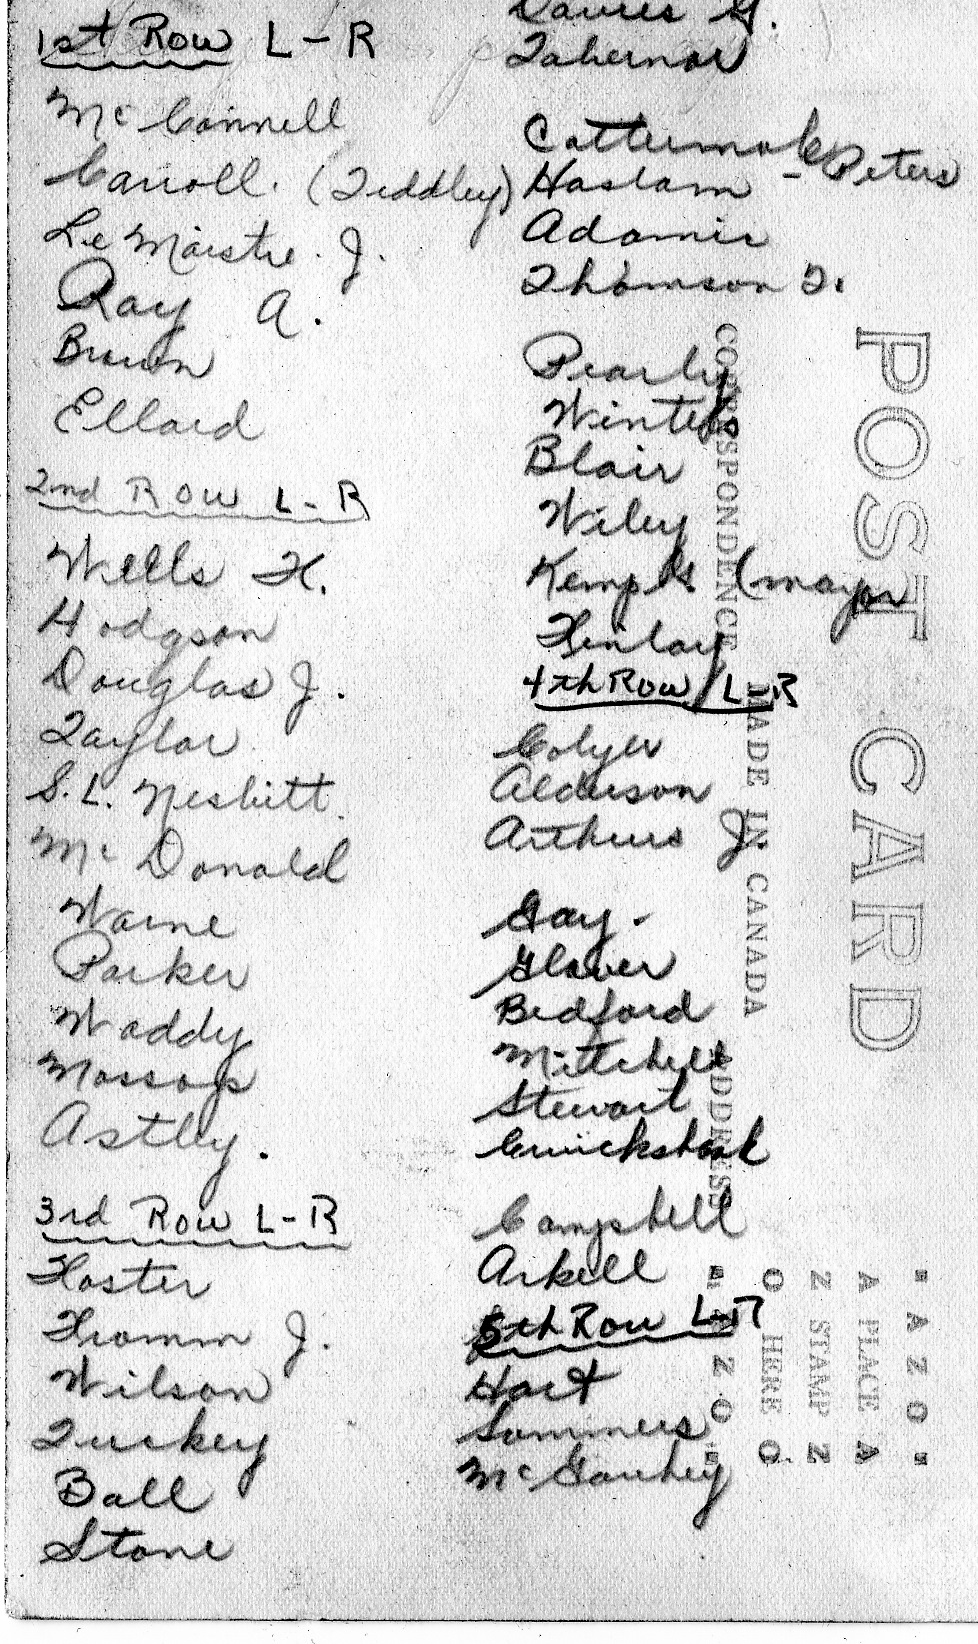 1st Row L-R
McConnell
Carroll. (Teddley)
Le Maistre. J.
Ray A.
Brown
Ellard
2nd Row L-R
Wells H.
Hodgson
Douglas J.
Taylor
S.L. Nesbitt
McDonald
Warne
Parker
Waddy
Mossop
Astley.
3rd Row L-R
Foster
Fromm J.
Wilson
Turkey
Ball
Stone
Davies G.
Tabernor
Cattermole
Haslam - Peters
Adamic
Thomson T.
Pearly
Winters
Blair
Wiley
Kemp (mayor
Finlay
4th Row L-R
Colyer
Alderson
Arthurs J.
Gay.
Glover
Bedford
Mitchell
Stewart
Cruickshank
Campbell
Arkell
5th Row L-R
Hart
Sommers
McGauhey
POST CARD
CORRESPONDENCE
MADE IN CANADA
ADDRESS
AZO
PLACE
STAMP
HERE
AZO